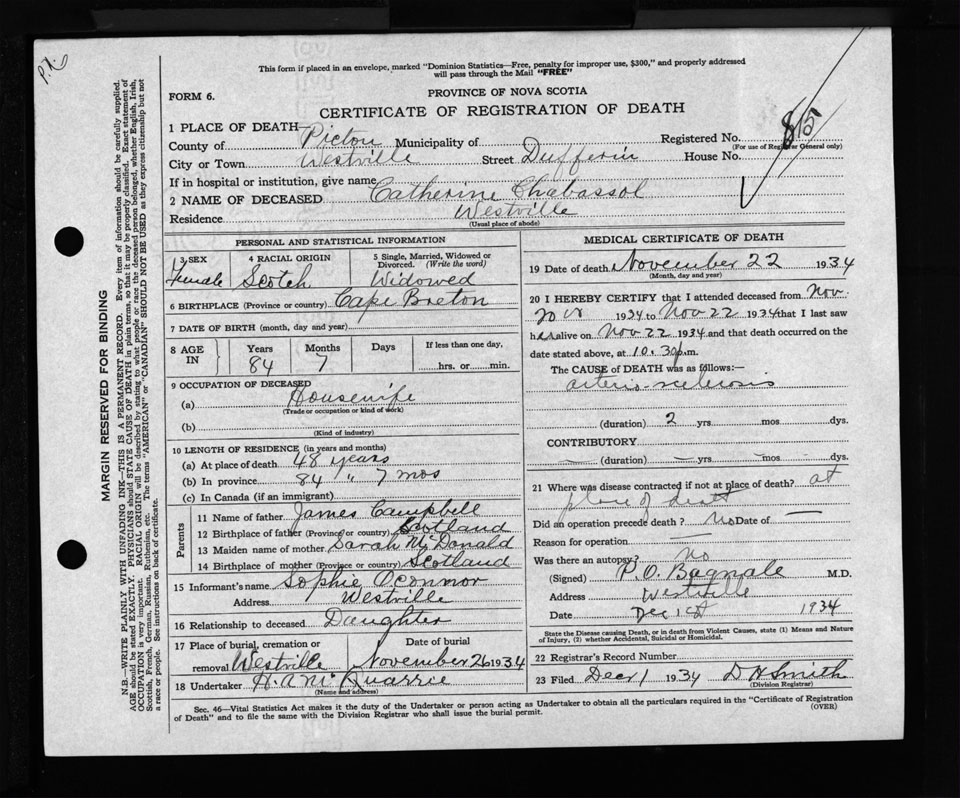 P.N.
This form if placed in an envelope, marked "Dominion Statistics—Free, penalty for improper use, $300," and properly addressed
will pass through the Mail "FREE"
FORM 6.
PROVINCE OF NOVA SCOTIA
CERTIFICATE OF REGISTRATION OF DEATH
1 PLACE OF DEATH
County of Pictou Municipality of Registered No. 815
(For use of Registrar General only)
City or Town Westville Street Dufferin House No.
If in hospital or institution, give name
2 NAME OF DECEASED Catherine Chabassol
Residence Westville
(Usual place of abode)
PERSONAL AND STATISTICAL INFORMATION
3 SEX 4 RACIAL ORIGIN 5 Single, Married, Widowed or Divorced. (Write the word)
Female Scotch Widowed
6 BIRTHPLACE (Province or country) Cape Breton
7 DATE OF BIRTH (month, day and year)
8 AGE IN Years Months Days If less than one day,
84 7 hrs. or min.
9 OCCUPATION OF DECEASED
(a) Housewife
(Trade or occupation or kind of work)
(b)
(Kind of industry)
10 LENGTH OF RESIDENCE (in years and months)
(a) At place of death 48 years
(b) In province 84 " 7 mos
(c) In Canada (if an immigrant)
Parents
11 Name of father James Campbell
12 Birthplace of father (Province or country) Scotland
13 Maiden name of mother Sarah McDonald
14 Birthplace of mother (Province or country) Scotland
15 Informant's name Sophie OConnor
Address Westville
16 Relationship to deceased Daughter
17 Place of burial, cremation or Date of burial
removal Westville November 26 1934
18 Undertaker H. A McQuarrie
(Name and address)
MEDICAL CERTIFICATE OF DEATH
19 Date of death November 22 1934
(Month, day and year)
20 I HEREBY CERTIFY that I attended deceased from Nov.
20 1934 to Nov 22 1934 that I last saw
her alive on Nov 22 1934 and that death occurred on the
date stated above, at 10.30 p.m.
The CAUSE of DEATH was as follows:—
arterio-sclerosis
(duration) 2 yrs mos dys.
CONTRIBUTORY
— (duration) — yrs — mos — dys.
21 Where was disease contracted if not at place of death? at
place of death
Did an operation precede death? No Date of —
Reason for operation —
Was there an autopsy? No
(Signed) P. O. Bagnall M.D.
Address Westville
Date Dec 1st 1934
State the Disease causing Death, or in death from Violent Causes, state (1) Means and Nature
of Injury, (2) whether Accidental, Suicidal or Homicidal.
22 Registrar's Record Number
23 Filed Dec 1 1934 D H Smith
(Division Registrar)
Sec. 46—Vital Statistics Act makes it the duty of the Undertaker or person acting as Undertaker to obtain all the particulars required in the "Certificate of Registration
of Death" and to file the same with the Division Registrar who shall issue the burial permit.
(OVER)
MARGIN RESERVED FOR BINDING
N.B.—WRITE PLAINLY WITH UNFADING INK—THIS IS A PERMANENT RECORD. Every item of information should be carefully supplied.
AGE should be stated EXACTLY. PHYSICIANS should STATE CAUSE OF DEATH in plain terms, so that it may be properly classified. Exact statement of
OCCUPATION is very important. RACIAL ORIGIN will be described by stating to what people or race the deceased person belonged, whether English, Irish,
Scottish, French, German, Russian, Ruthenian, etc. The terms "AMERICAN" or "CANADIAN" SHOULD NOT BE USED as they express citizenship but not
a race or people. See instructions on back of certificate.